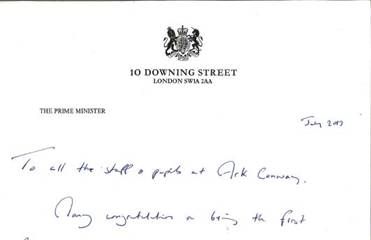 10 DOWNING STREET
LONDON SW1A 2AA
THE PRIME MINISTER
July 2013
To all the staff & pupils at Ark Conway.
Many congratulations on being the first